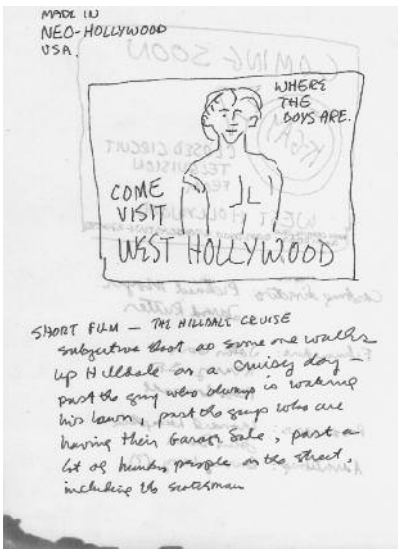 MADE IN
NEO-HOLLYWOOD
USA.
COMING SOON
WHERE
THE
BOYS ARE.
CLOSED CIRCUIT
TELEVISION
COME
VISIT
WEST HOLLYWOOD
SHORT FILM — THE HILLDALE CRUISE
subjective shot as some one walks
up Hilldale on a cruisy day —
past the guy who always is watering
his lawn, past the guys who are
having their Garage Sale, past a
lot of hunky people on the street,
including the